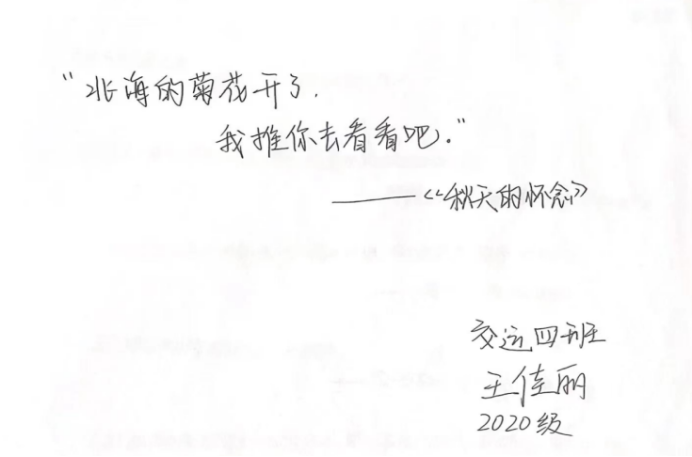 “北海的菊花开了.
我推你去看看吧.”
——《秋天的怀念》
交运四班
王佳丽
2020级